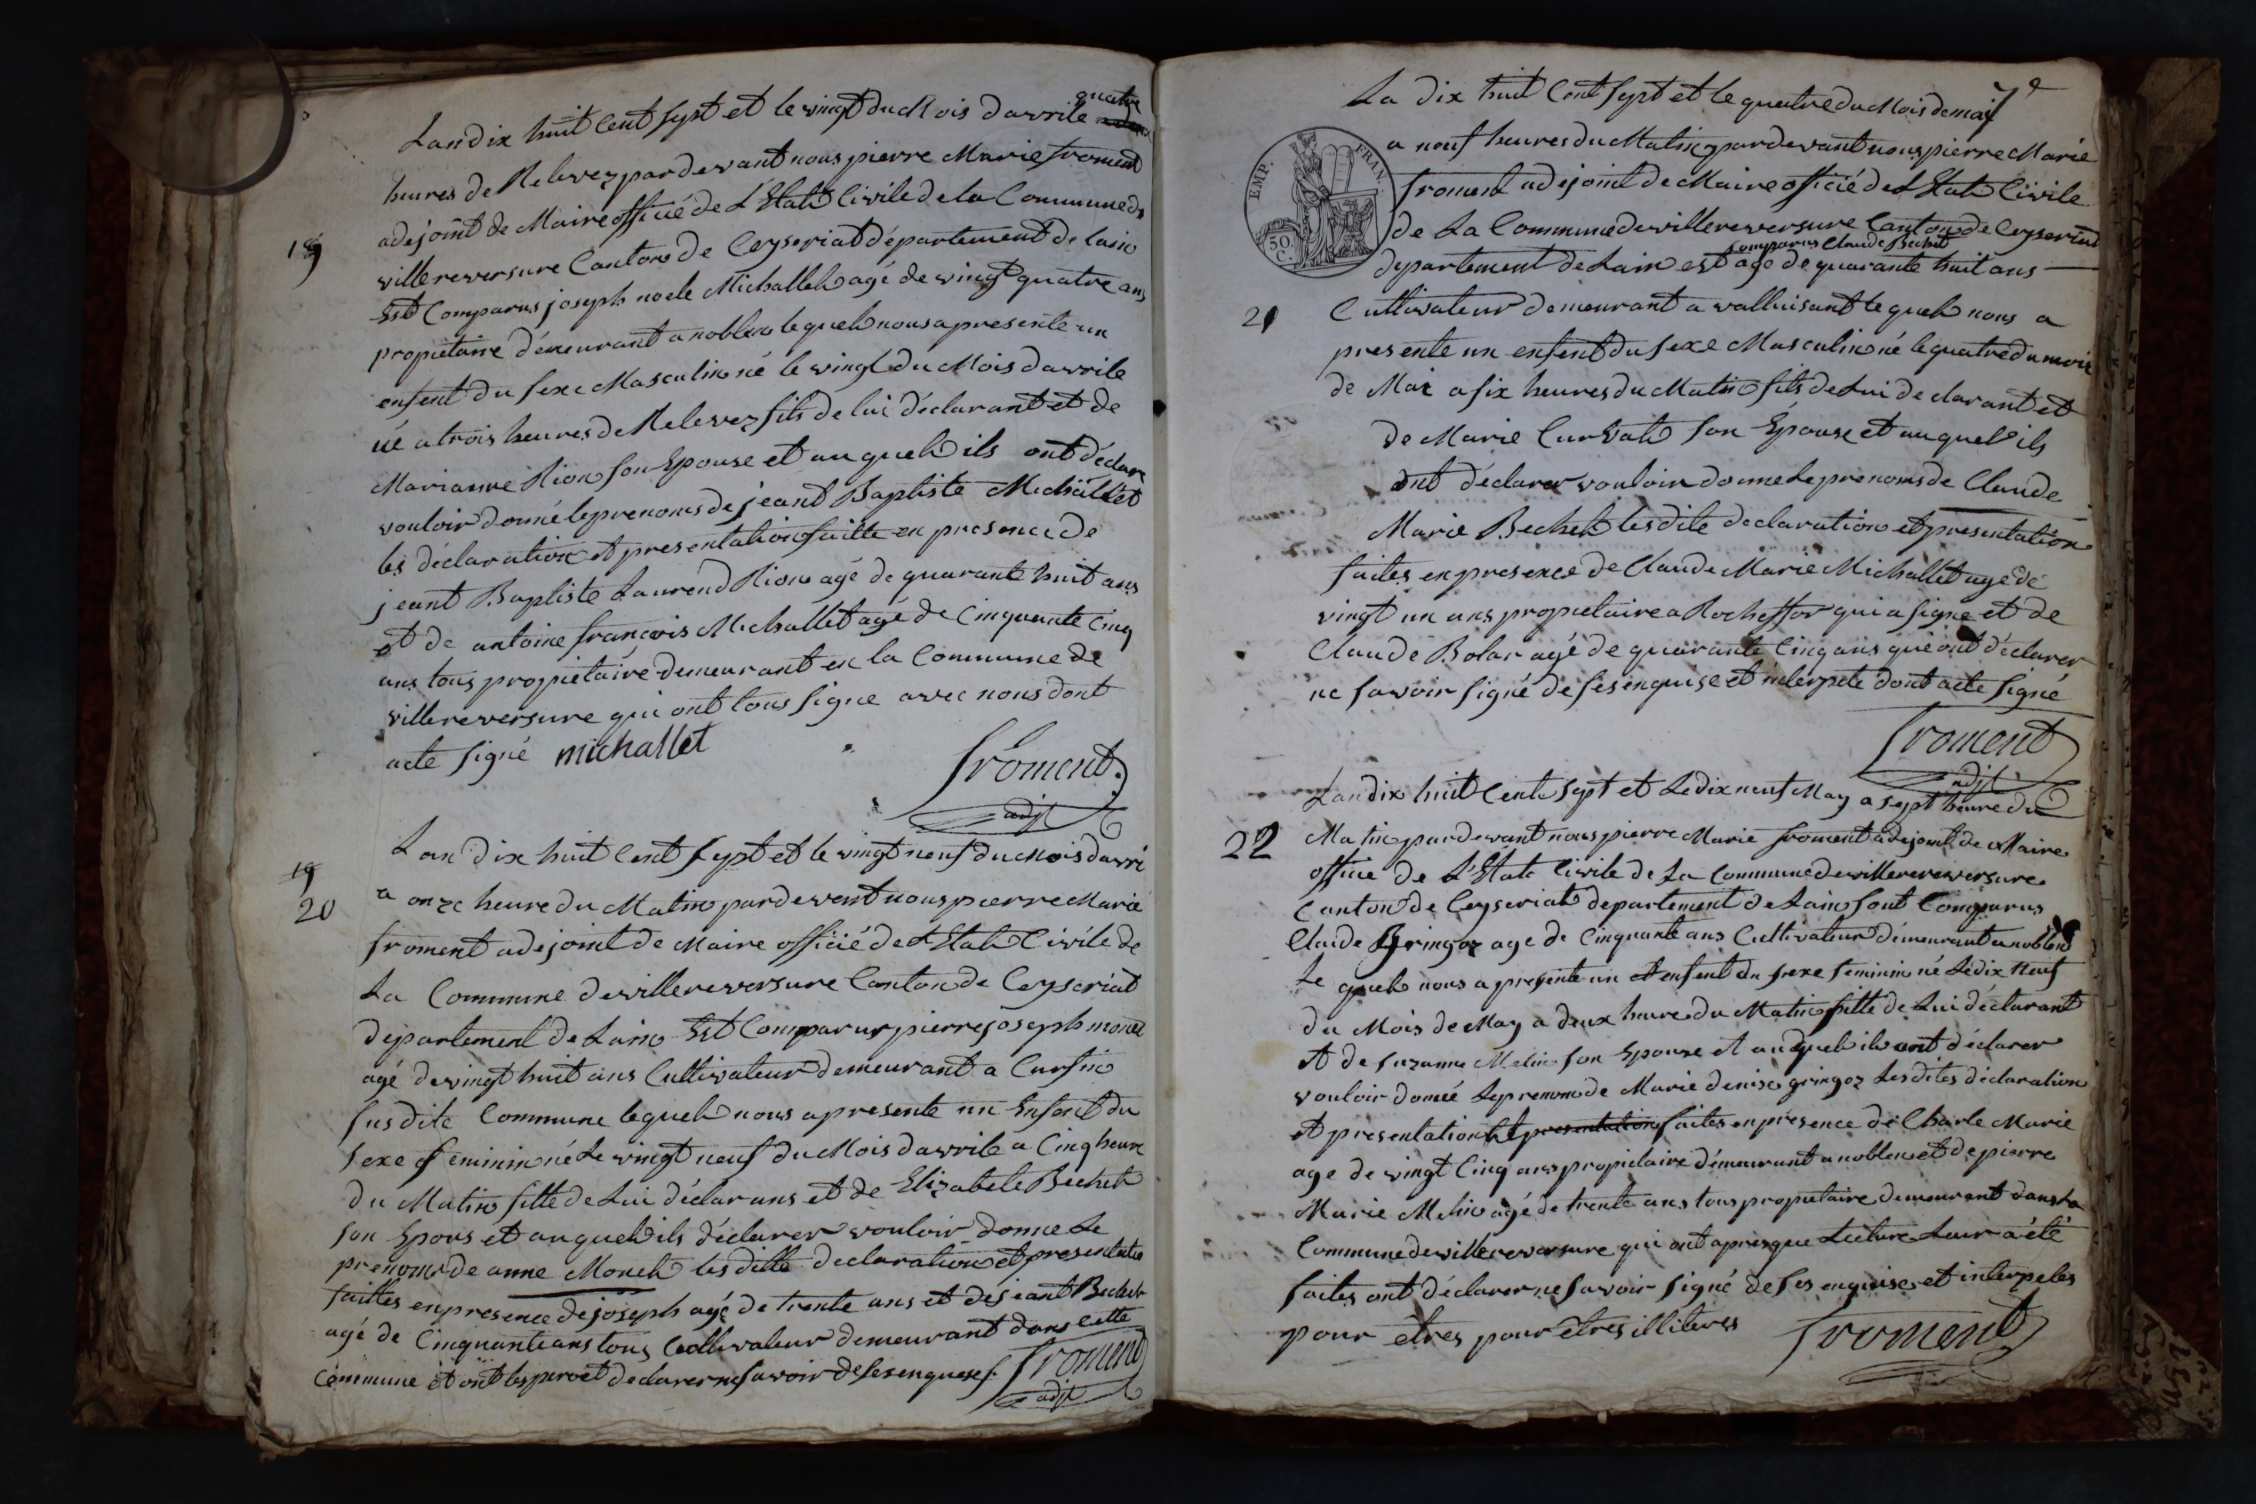 quatre
Landix huit Cent sept et le vingt du Mois davrile
heures de Relevez pardevant nous pierre Marie froment
adejoint de Maire officié de L'Etat Civile de la Commune de
19
villereversure Canton de Ceyseriat département de lain
Est Comparus joseph noele Michallet agé de vingt quatre ans
propiétaire démeurant a noblen lequel nous apresente un
enfent du sexe Masculin né le vingt du Mois davrile
né a trois heures de Relevez fils de lui déclarant et de
Marianne Rion son Epouse et au quel ils ont déclare
vouloir donné le prenoms de jeant Baptiste Michallet
les déclaration et presentation faitte en presence de
jeant Baptiste Laurend Rion agé de quarante huit ans
et de antoine françois Michallet agé de Cinquante Cinq
ans tous propiétaire demeurant en la Commune de
villereversure qui ont tous signe avec nous dont
acte signé michallet
froment
adjt
Lan dix huit Cent sept et le vingt neuf du Mois davri
19
20
a onze heure du Matin pardevent nous pierre Marie
froment adejoint de Maire officié de L'Etat Civile de
La Commune devillereversure Canton de Ceyseriat
departement de Lain Est Comparus pierre joseph monet
agé devingt huit ans Cultivateur demeurant a Cursin
susdite Commune lequel nous apresente un Enfent du
sexe feminin né Le vingt neuf du Mois davrile a Cinq heure
du Matin fille de Lui déclarans et de Elizabete Bechet
son Epous et au quel ils déclarer vouloir donne Le
prenoms de anne Monet lesditte declaration et presentatio
faittes en presence de joseph agé de trente ans et de jeant Bechet
agé de Cinquante ans tous Cultivateur demeurant dans cette
Commune et ont declarer ne savoir de ses enquese
froment
adjt
7e
La dix huit Cent sept et le quatre du Mois de mai
a neuf heures du Matin pardevant nous pierre Marie
EMP. FRAN.
30. C.
froment adejoint de Maire officié de L'Etat Civile
de La Commune devillereversure Canton de Ceyseriat
comparus Claude Bechet
departement de Lain est agé de quarante huit ans
21
Cultivateur demeurant a valluisant le quel nous a
presente un enfent du sexe Masculin né le quatre du mois
de Mai a six heures du Matin fils de Lui declarant et
de Marie Curvat son Épouse et au quel ils
ont déclarer vouloir donne Le prenoms de Claude
Marie Bechet lesdite declaration et presentation
faites en presence de Claude Marie Michallet age de
vingt un ans propietaire a Rocheffor qui a signe et de
Claude Bolar agé de quarante Cinq ans qui ont déclarer
ne savoir signé de ses enquise et interpete dont acte signé
froment
adjt
Landix huit Cente sept et Ledix neuf May a sept heure du
22
Matin pardevant nous pierre Marie froment adejoint de Maire
officie de L'Etat Civile de La Commune devillerereversure
Canton de Ceyseriat departement de Lain sont Comparus
Claide gringoz age de Cinquante ans Cultivateur démeurant a noblens
Le quel nous a presente un et enfent du sexe feminin né Le dix neuf
du Mois de May a deux heure du Matin fille de Lui déclarant
et de suzanne Melin son Epouse et au quel ils ont déclarer
vouloir donné Le prenom de Marie denise gringoz Lesdites déclaration
et presentation et presentation faites en presence de Charle Marie
age de vingt Cinq ans propietaire démeurant a noblen et de pierre
Marie Melin agé de trente ans tous propietaire demeurant dans la
Commune devillereversure qui ont apres que Lecture Leur a été
faites ont déclarer ne savoir signé de ses enquises et interpeles
pour etres pour etres illiteres
froment